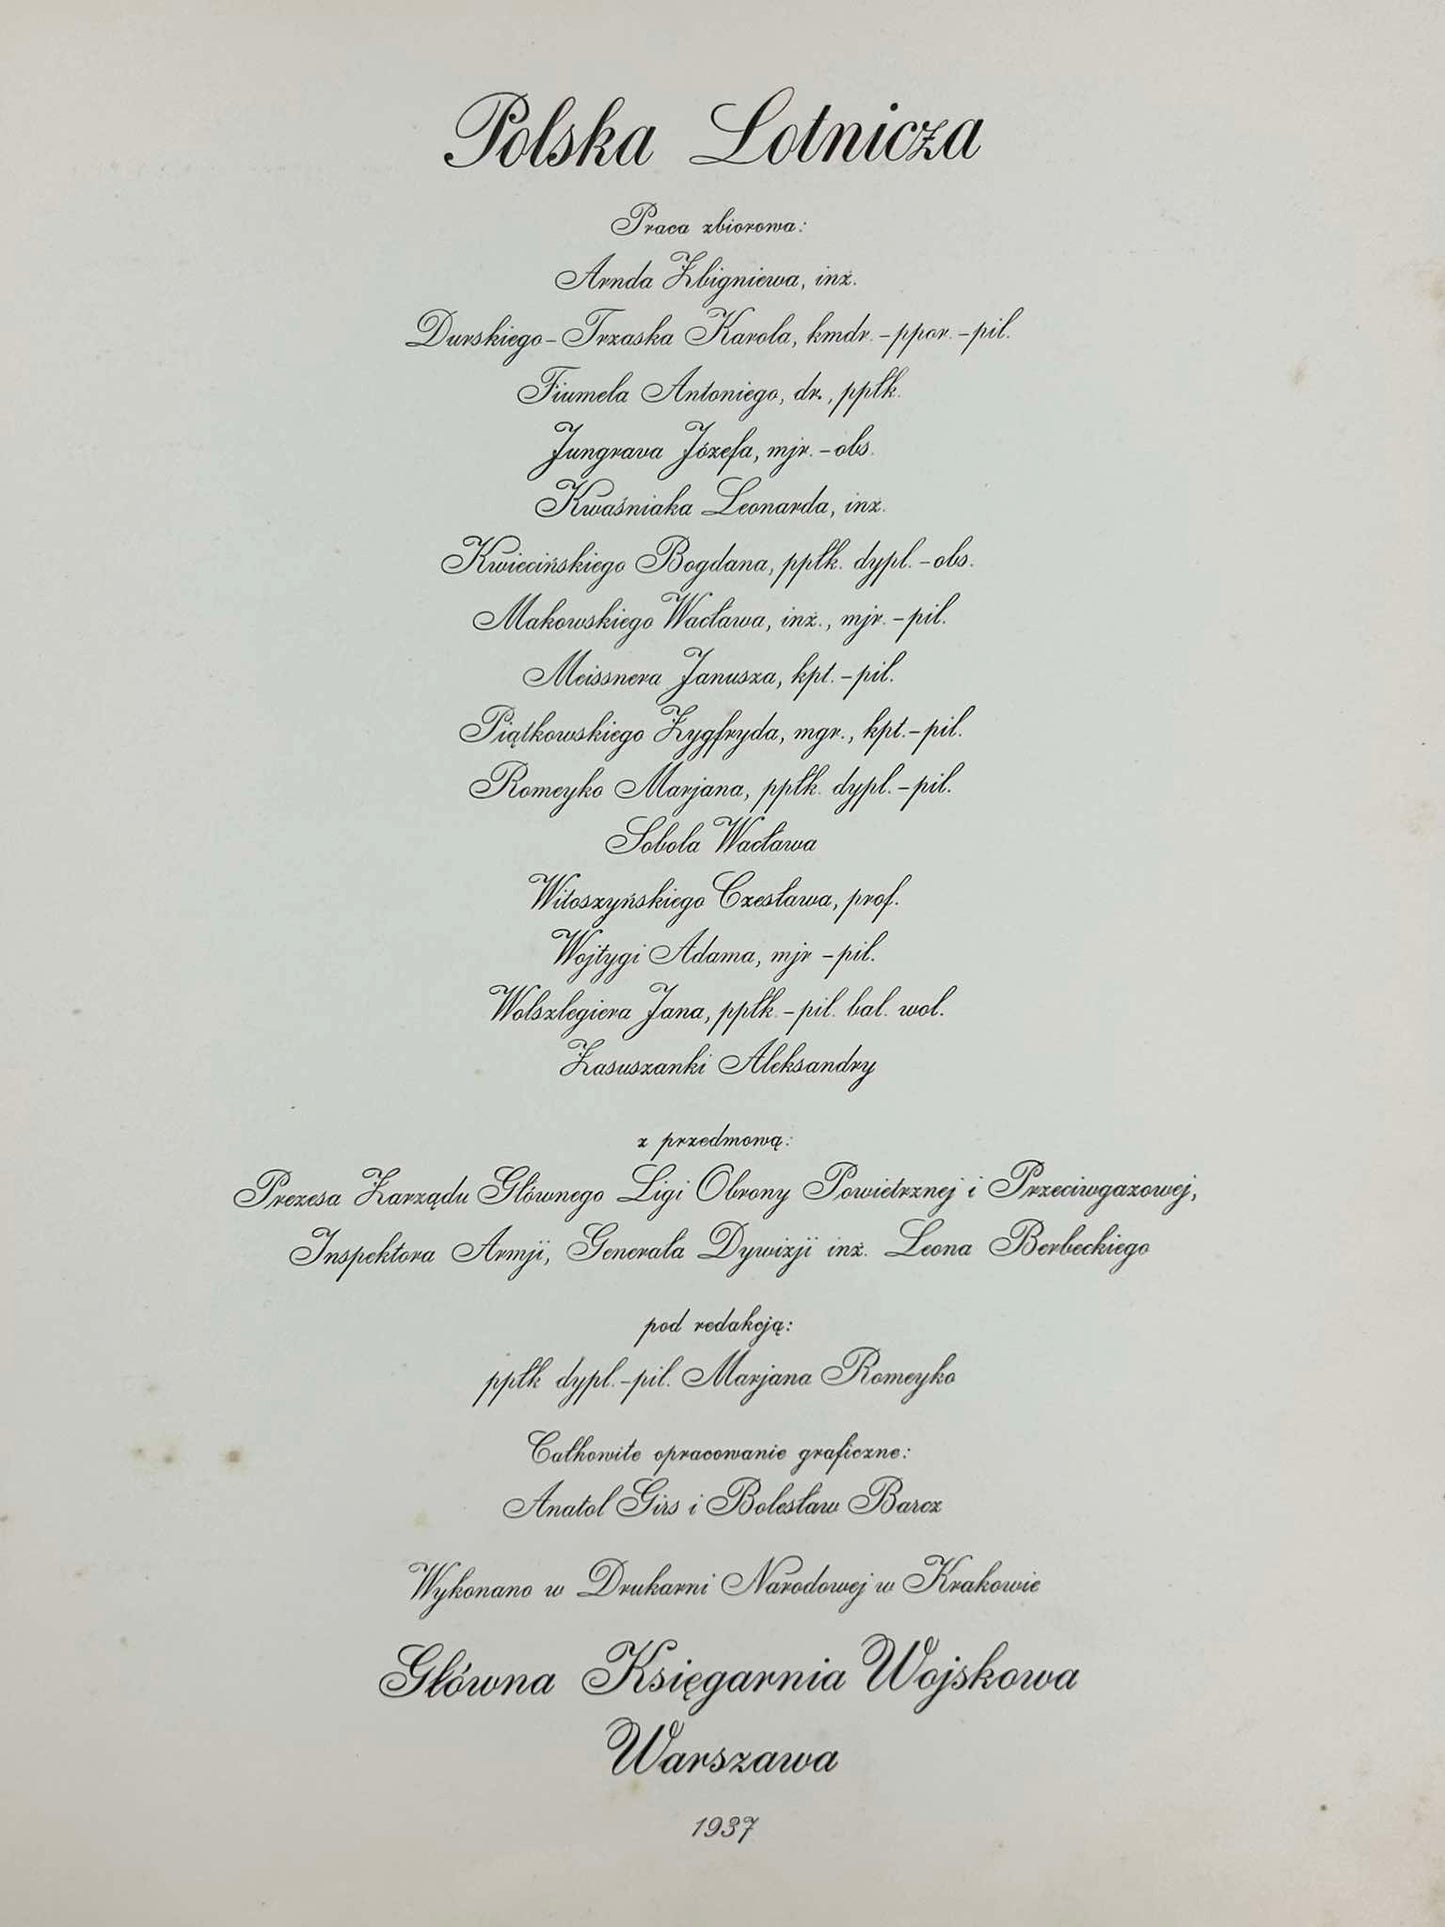 Polska Lotnicza
Praca zbiorowa:
Arnda Zbigniewa, inż.
Durskiego-Trzaska Karola, kmdr.-ppor.-pil.
Fiumela Antoniego, dr., ppłk.
Jungrava Józefa, mjr.-obs.
Kwaśniaka Leonarda, inż.
Kwiecińskiego Bogdana, ppłk. dypl.-obs.
Makowskiego Wacława, inż., mjr.-pil.
Meissnera Janusza, kpt.-pil.
Piątkowskiego Zygfryda, mgr., kpt.-pil.
Romeyko Marjana, ppłk. dypl.-pil.
Sobola Wacława
Witoszyńskiego Czesława, prof.
Wojtygi Adama, mjr-pil.
Wolszlegiera Jana, ppłk.-pil. bal. wol.
Zasuszanki Aleksandry
z przedmową:
Prezesa Zarządu Głównego Ligi Obrony Powietrznej i Przeciwgazowej,
Inspektora Armji, Generała Dywizji inż. Leona Berbeckiego
pod redakcją:
ppłk dypl.-pil. Marjana Romeyko
Całkowite opracowanie graficzne:
Anatol Girs i Bolesław Barcz
Wykonano w Drukarni Narodowej w Krakowie
Główna Księgarnia Wojskowa
Warszawa
1937